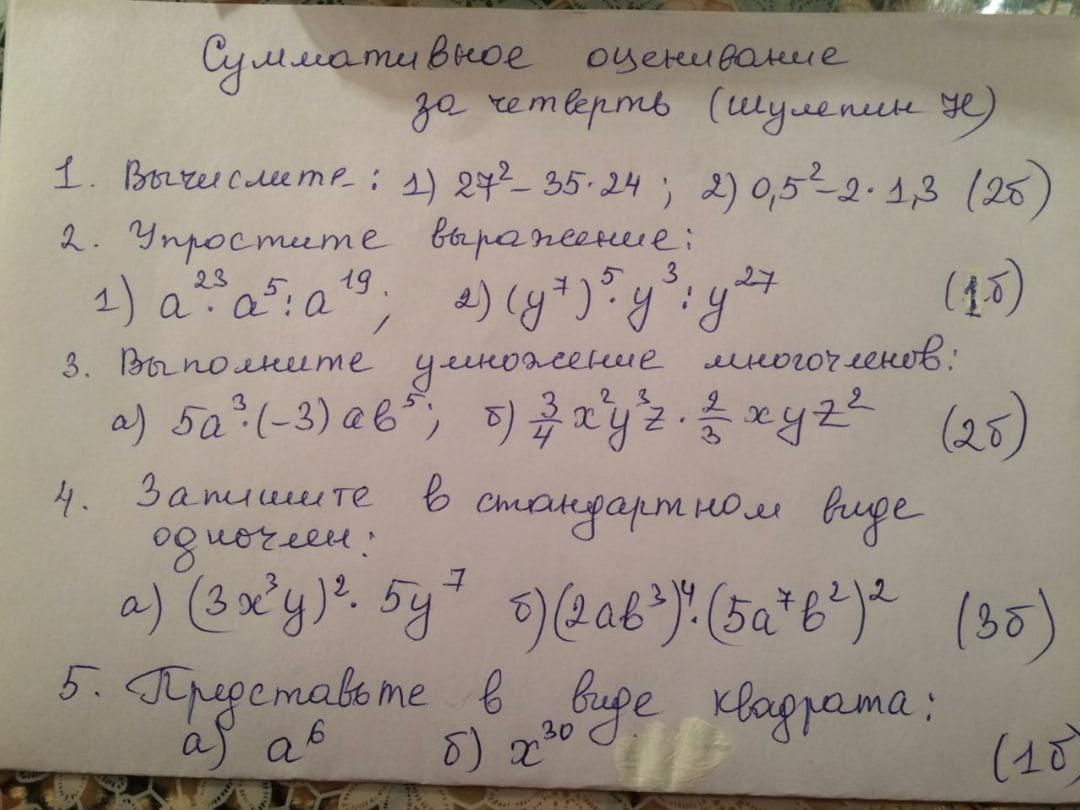 Суммативное оценивание
за четверть (Шулепин Н)
1. Вычислите: 1) 27² - 35·24 ; 2) 0,5² - 2·1,3 (2б)
2. Упростите выражение:
1) a²³·a⁵:a¹⁹; 2) (y⁷)⁵·y³:y²⁷ (1б)
3. Выполните умножение многочленов:
а) 5a³·(-3)ab⁵; б) 3/4 x²y³z · 2/3 xyz² (2б)
4. Запишите в стандартном виде
одночлен:
а) (3x³y)²· 5y⁷ б) (2ab³)⁴·(5a⁷b²)² (3б)
5. Представьте в виде квадрата:
а) a⁶ б) x³⁰ (1б)